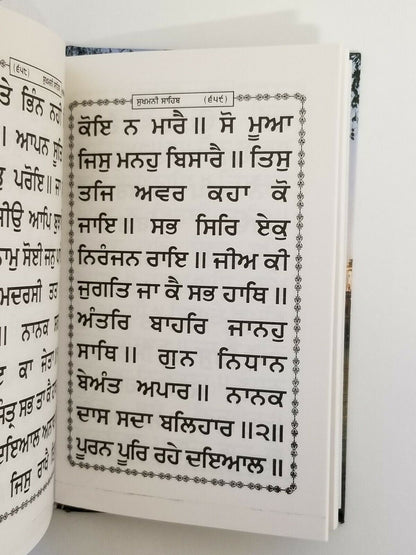 (੬੫੮) ਸੁਖਮਨੀ
ਤੇ ਭਿੰਨ ਨਹੀ
॥ ਆਪਨ ਸੂਤਿ
ਪਰੋਇ॥
ਜੀਉ ਆਪਿ
ਨਾਮੁ ਸੋਈ ਜਨੁ
ਤਤ
॥ ਨਾਨਕ
ਕਾ ਜੇਤਾ
ਜੰਤ੍ਰ ਸਭ ਤਾ ਕੈ
ਦਇਆਲ
ਜਿਸੁ ਰਾਖੈ
ਸੁਖਮਨੀ ਸਾਹਿਬ (੬੫੯)
ਕੋਇ ਨ ਮਾਰੈ॥ ਸੋ ਮੂਆ
ਜਿਸੁ ਮਨਹੁ ਬਿਸਾਰੈ॥ ਤਿਸੁ
ਤਜਿ ਅਵਰ ਕਹਾ ਕੋ
ਜਾਇ॥ ਸਭ ਸਿਰਿ ਏਕੁ
ਨਿਰੰਜਨ ਰਾਇ॥ ਜੀਅ ਕੀ
ਜੁਗਤਿ ਜਾ ਕੈ ਸਭ ਹਾਥਿ॥
ਅੰਤਰਿ ਬਾਹਰਿ ਜਾਨਹੁ
ਸਾਥਿ॥ ਗੁਨ ਨਿਧਾਨ
ਬੇਅੰਤ ਅਪਾਰ॥ ਨਾਨਕ
ਦਾਸ ਸਦਾ ਬਲਿਹਾਰ॥੨॥
ਪੂਰਨ ਪੂਰਿ ਰਹੇ ਦਇਆਲ॥